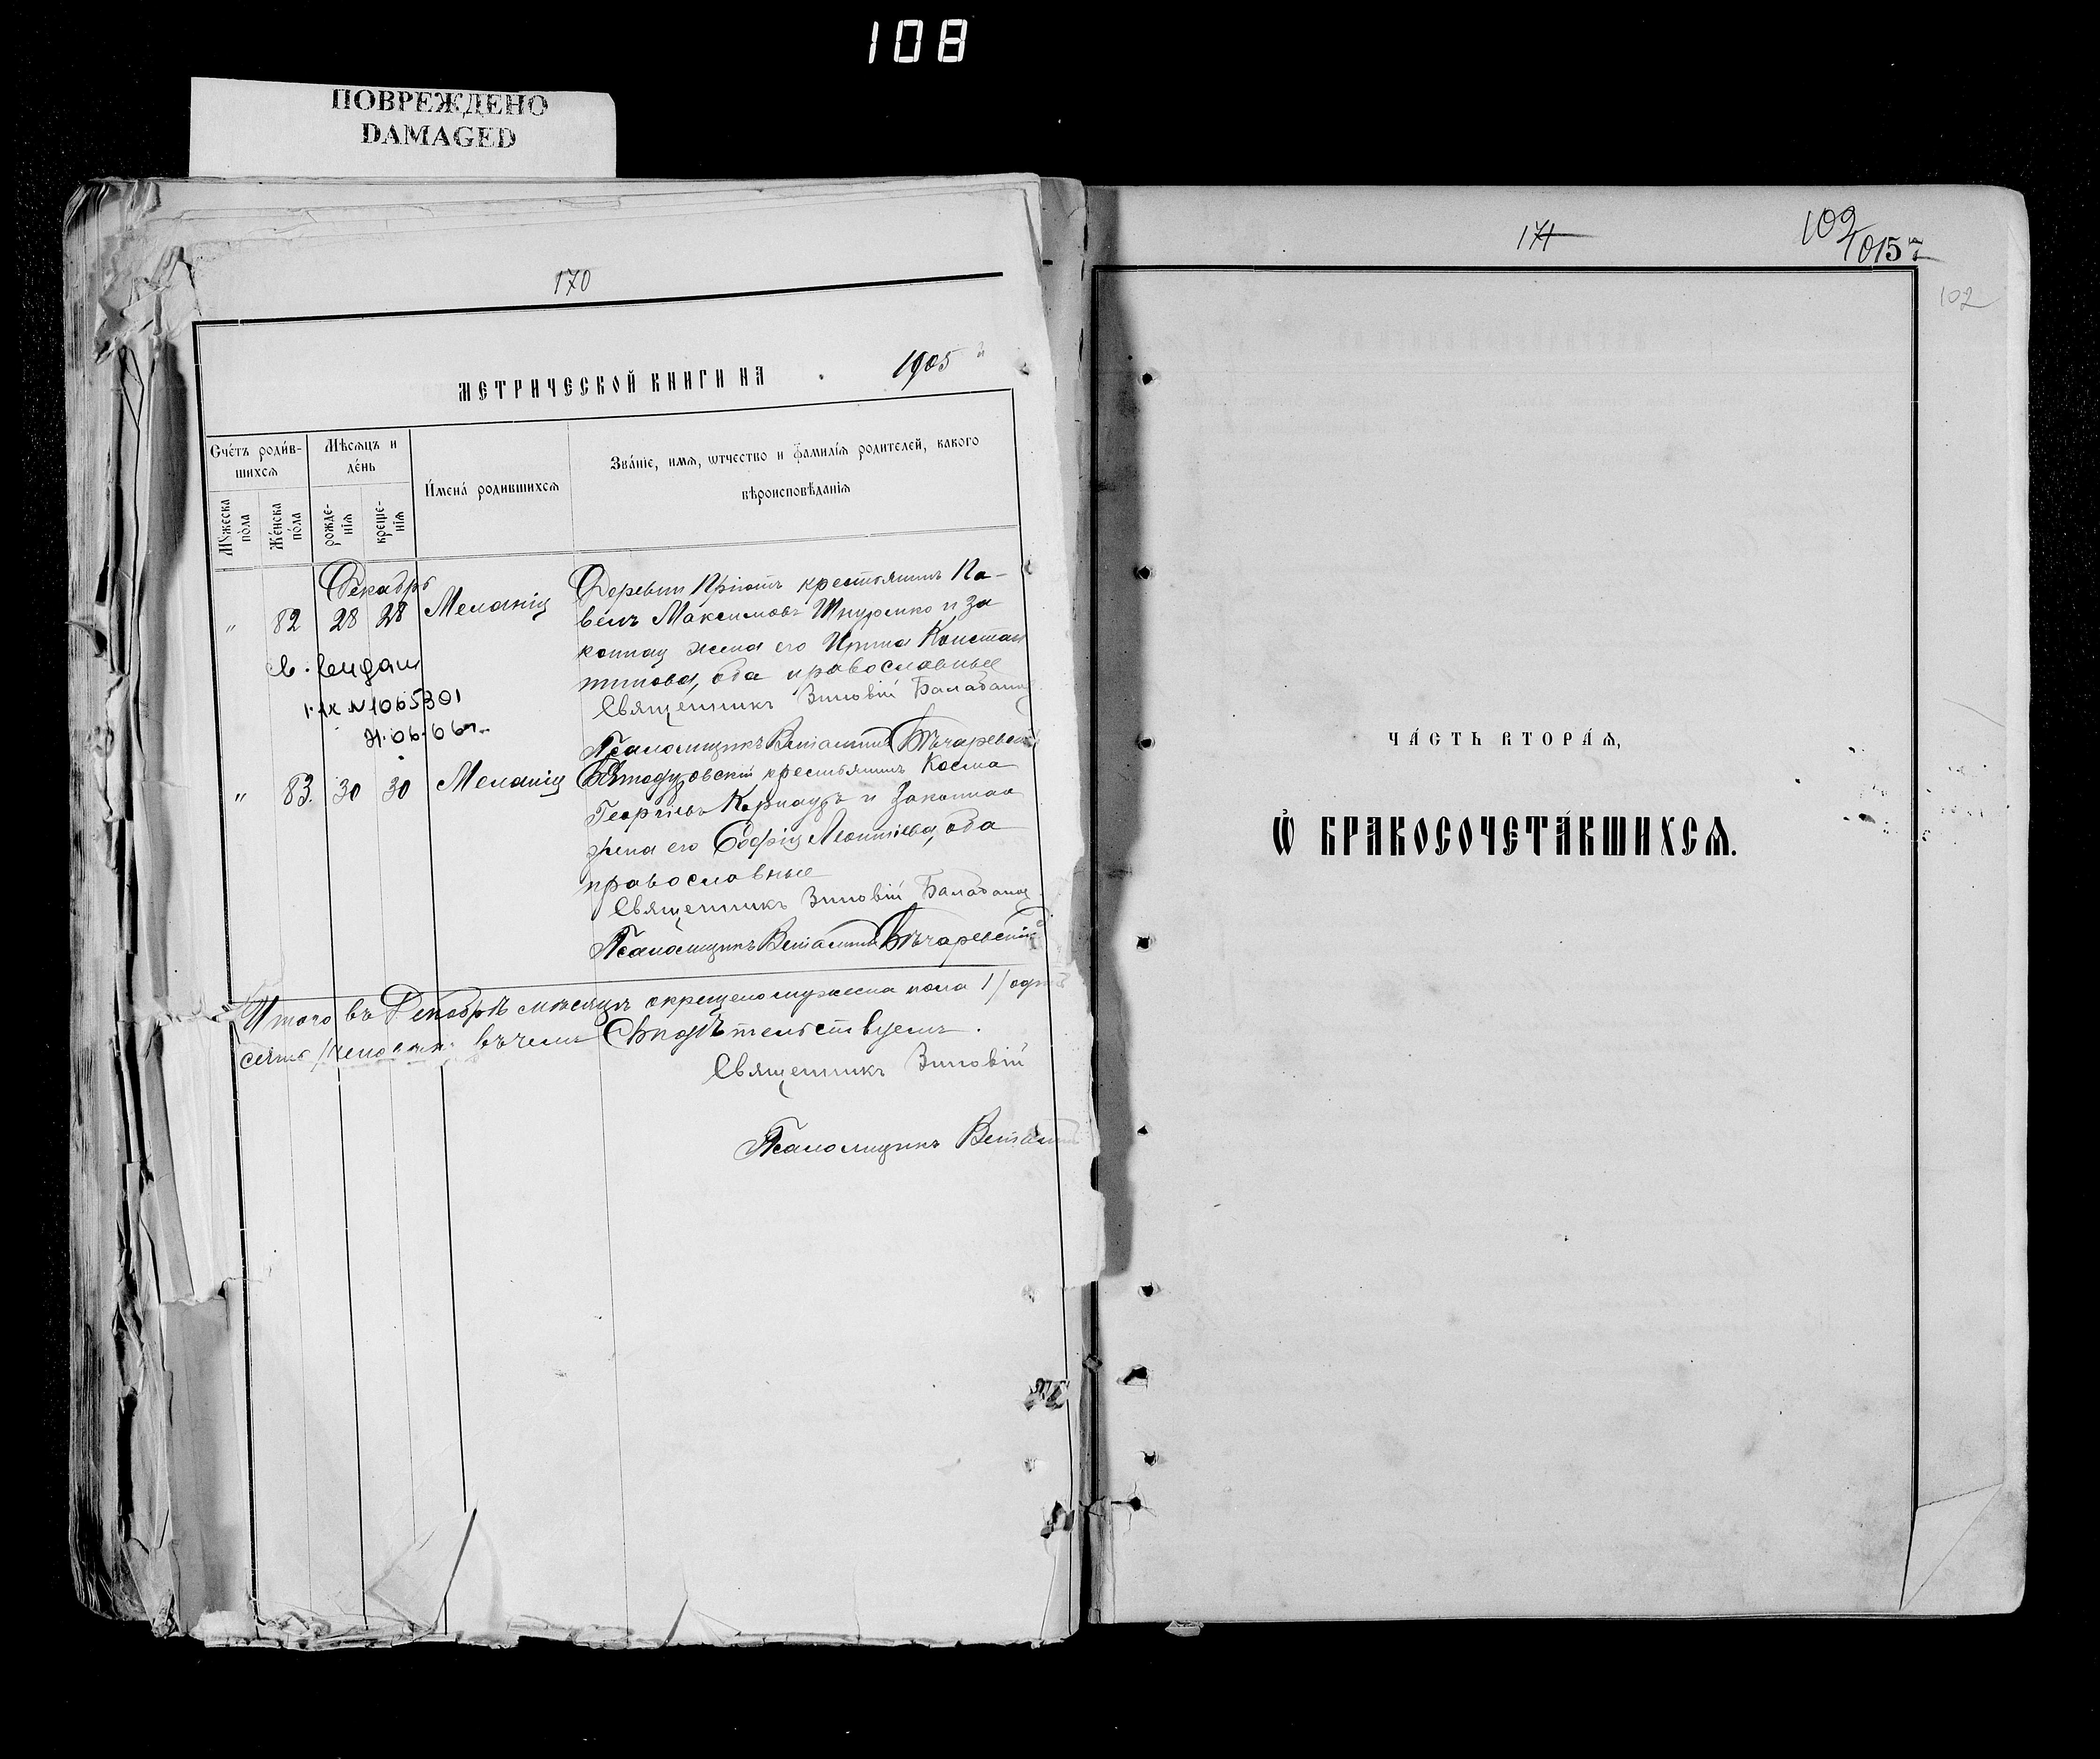 108
ПОВРЕЖДЕНО
DAMAGED
170
МЕТРИЧЕСКОЙ КНИГИ НА 1905
Сче́тъ роди́вшихсѧ
Мѣсѧцъ и де́нь
И҆мена̀ родившихсѧ
Зва́нїе, имѧ, ѿтчество и фамилїѧ родителей, какого
вѣроисповѣданїѧ
Мꙋжеска по́ла
Же́нска по́ла
рожде-нїѧ
креще-нїѧ
Декабрь
" 82 28 28 Меланія
Деревни Пріютъ крестьянинъ Па-
велъ Максимовъ Шкуренко и за
конная жена его Ирина Констан
тинова, оба православные
Священникъ Зиновій Балабанов
Псаломщикъ Веніаминъ
св. выдано
N 1065301
" 83. 30 30 Меланія
крестьянинъ Косма
Георгіевъ Карнаухъ и законная
жена его Евфрія Леонтіева, оба
православные
Священникъ Зиновій Балабанов
Псаломщикъ Веніаминъ
Итого въ Декабрѣ мѣсяцѣ окрещено мужеска пола 1/одинъ
въ чемъ Свидѣтельствуемъ.
Священникъ Зиновій
Псаломщикъ Веніаминъ
171
102
102
ЧА́СТЬ ВТОРА́Ѧ,
Ѽ БРАКОСОЧЕТА́ВШИХСѦ.